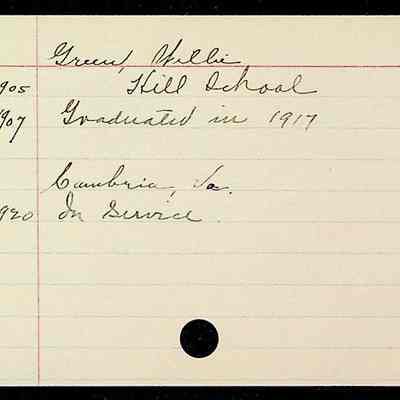 Green, Willie
905 Hill School
1907 Graduated in 1917
Cambria, Va.
920 In Service.